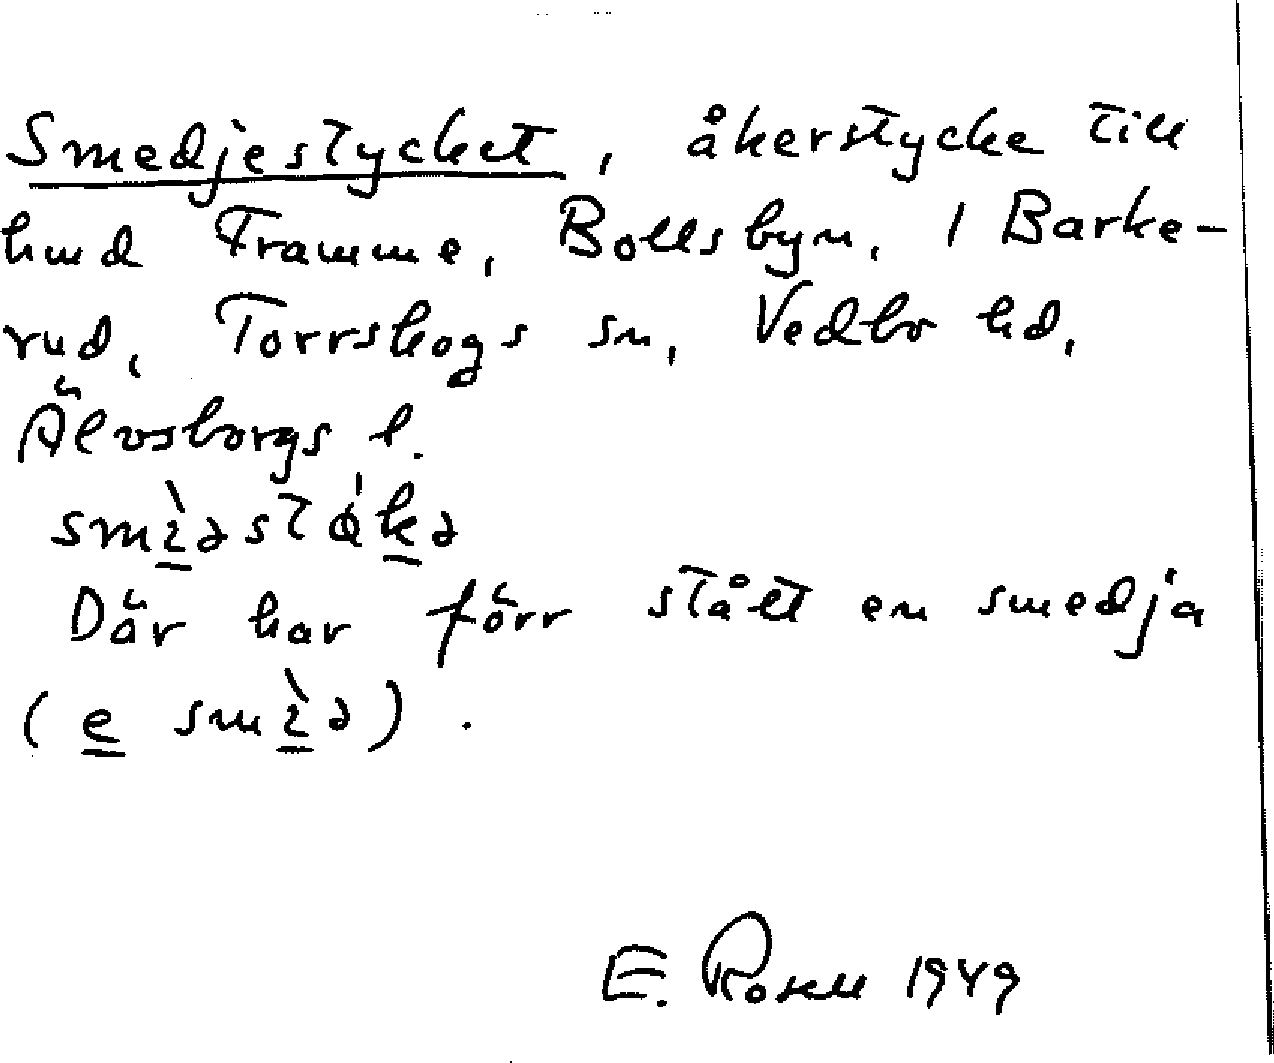 Smedjestycket, åkerstycke till
hmd Framme, Bollsbyn, 1 Barke-
rud, Torrskogs sn, Vedbo hd,
Älvsborgs l.
Där har förr stått en smedja
E. Rosell 1949